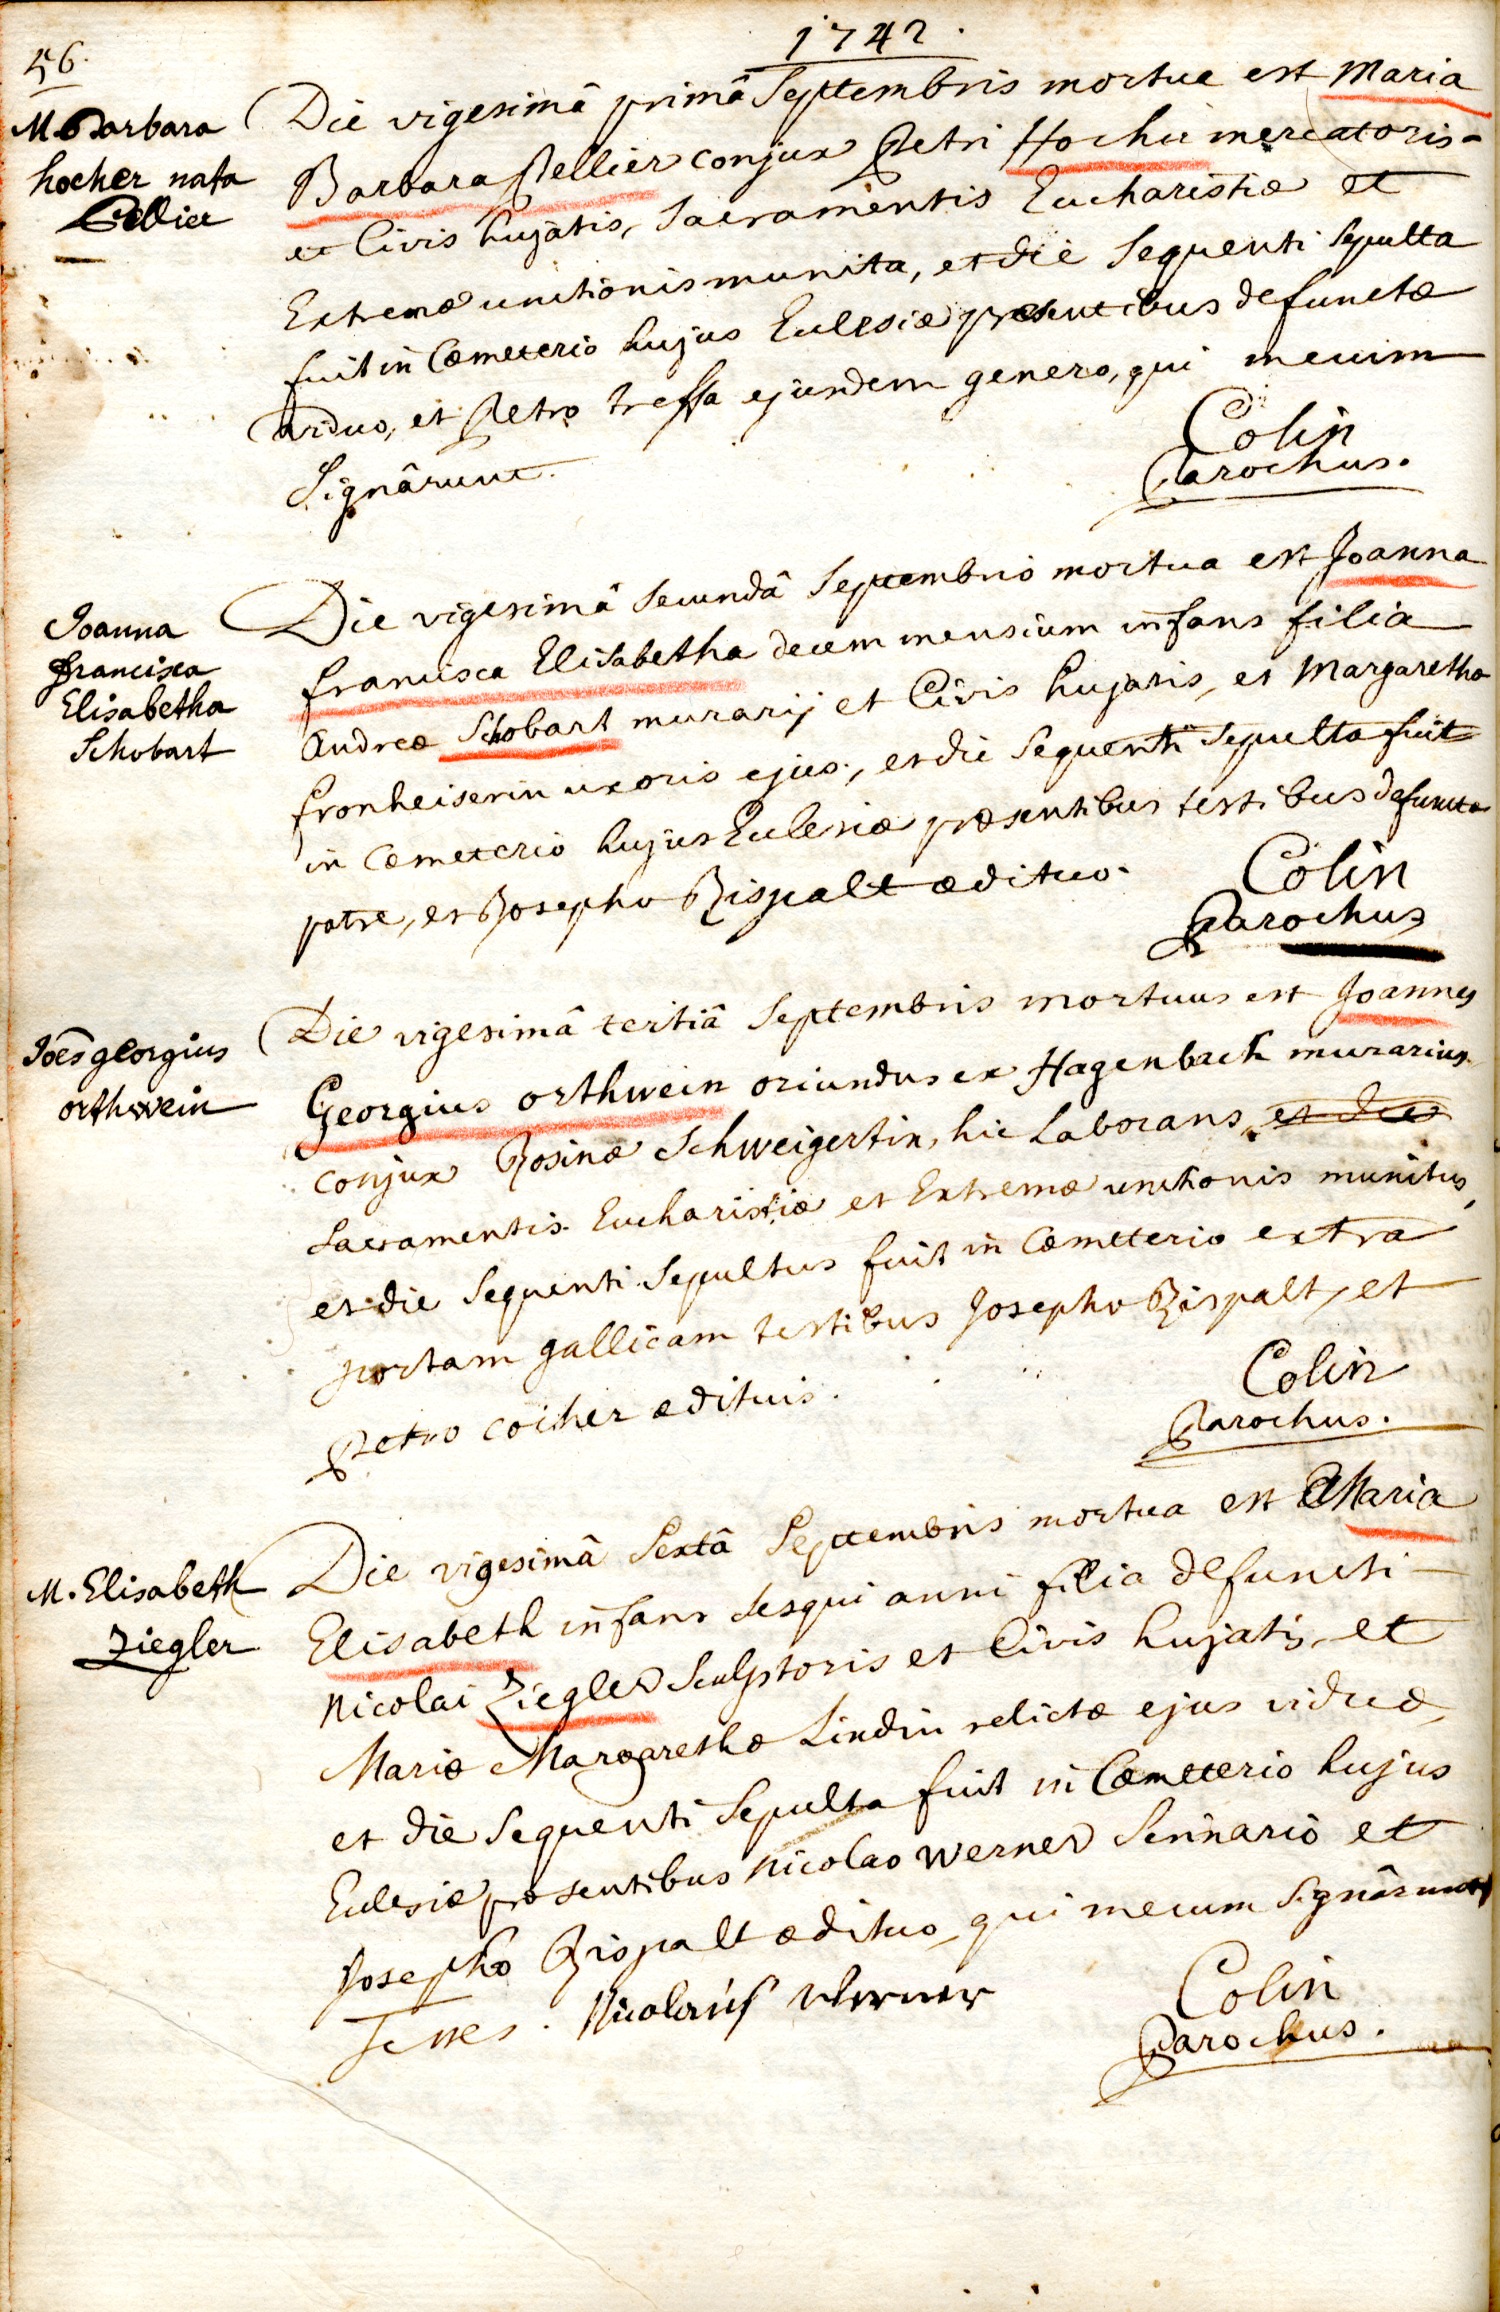 1742.
56.
M. Barbara
hocher nata
Pellier
Die vigesimâ primâ Septembris mortue est Maria
Barbara Pellier conjux Petri Hocher mercatoris
et Civis hujatis, Sacramentis Eucharistiæ et
Extremæ unctionis munita, et die Sequenti Sepulta
fuit in Cœmeterio hujus Eulesiæ præsentibus defunctæ
viduo, et Petro Treffa ejusdem genero, qui mecum
Signârunt.
Colin
Parochus.
Joanna
francisca
Elisabetha
Schobart
Die vigesimâ Secundâ Septembris mortua est Joanna
francisca Elisabetha decem mensium infans filia
Andreæ Schobart murarij et Civis hujatis, et Margaretha
fronheiserin uxoris ejus, et die Sequenti Sepulta fuit
in Cœmeterio hujus Eulesiæ præsentibus testibus defunctæ
patre, et Josepho Rispalt ædituo.
Colin
Parochus
Joes georgius
orthwein
Die vigesimâ tertiâ Septembris mortuus est Joannes
Georgius orthwein oriundus ex Hagenbach murarius
conjux Rosinæ Schweigertin, hic Laborans, et die
Sacramentis Eucharistiæ et Extremæ unctionis munitus,
et die Sequenti Sepultus fuit in Cœmeterio extra
portam gallicam testibus Josepho Rispalt, et
Petro cocher ædituis.
Colin
Parochus.
M. Elisabeth
Ziegler
Die vigesimâ Sextâ Septembris mortua est Maria
Elisabeth infans sesqui anni filia defuncti
Nicolai Ziegler Sculptoris et Civis hujatis, et
Mariæ Margarethæ Lindin relictæ ejus viduæ,
et die Sequenti Sepulta fuit in Cœmeterio hujus
Eulesiæ præsentibus Nicolao Werner Scrinario et
Josepho Rispalt ædituo, qui mecum Signârunt
Testes. Nicolaus Werner
Colin
Parochus.